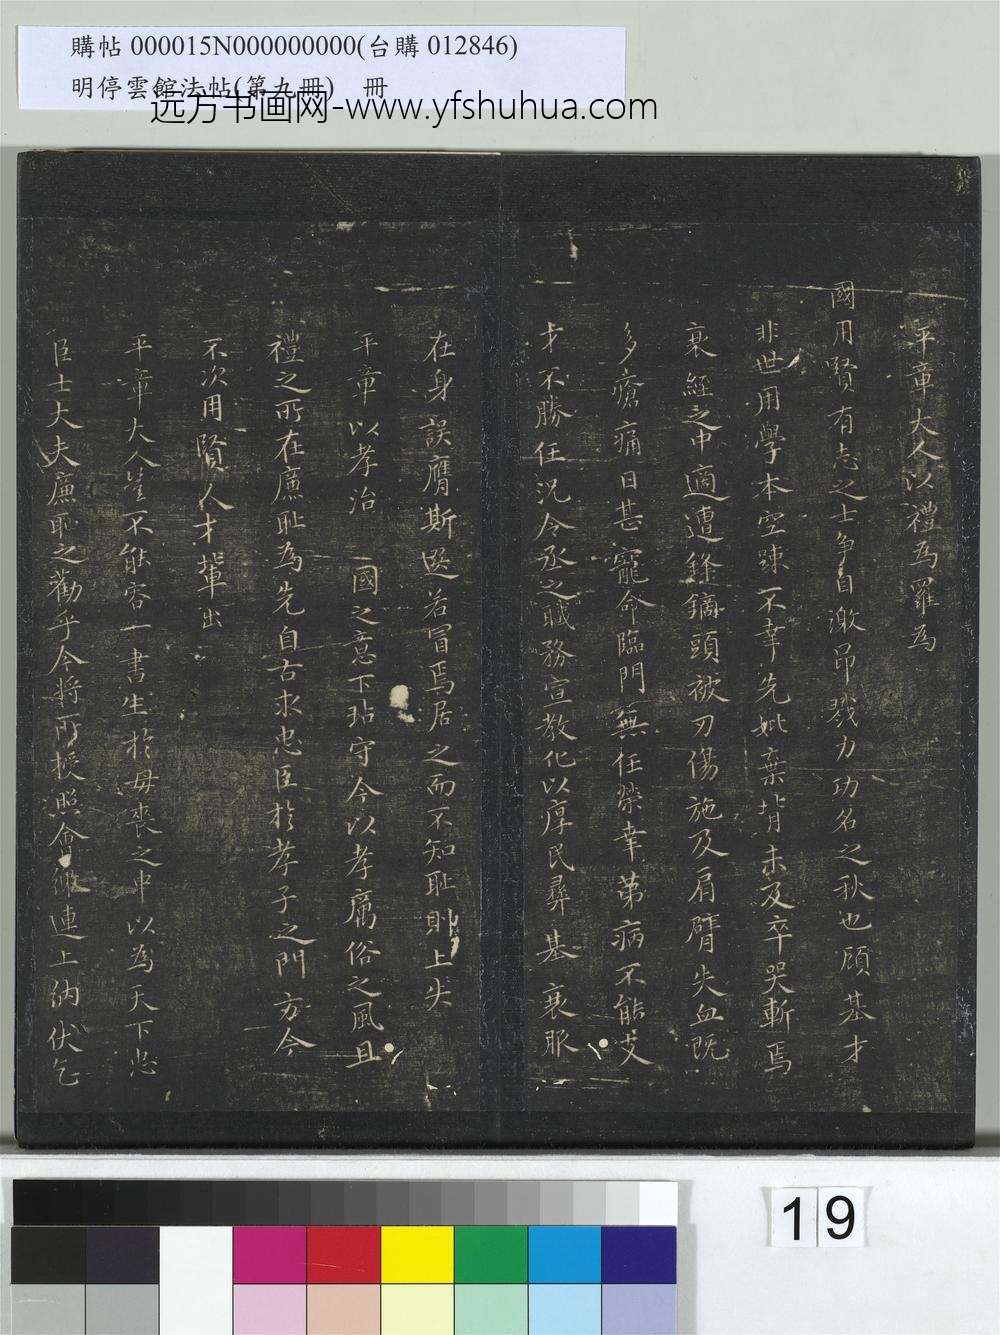 購帖 000015N000000000(台購 012846)
明停雲館法帖(第九冊) 冊
远方书画网-www.yfshuhua.com
平章大人以禮為羅為
國用賢有志之士争自激昂戮力功名之秋也顧基才
非世用學本空踈不幸先妣棄背未及卒哭斬焉
衰絰之中適遭鋒鏑頭被刃傷施及肩臂失血既
多瘡痛日甚寵命臨門無任榮幸第病不能支
才不勝任况令丞之職務宣教化以厚民彝基衰服
在身誤膺斯選若冒焉居之而不知耻則上失
平章以孝治 國之意下玷守令以孝厲俗之風且
禮之所在廉耻為先自古求忠臣於孝子之門方今
不次用賢人才輩出
平章大人豈不能容一書生於母喪之中以為天下忠
臣士大夫廉耻之勸乎今將所授照會繳連上納伏乞
19